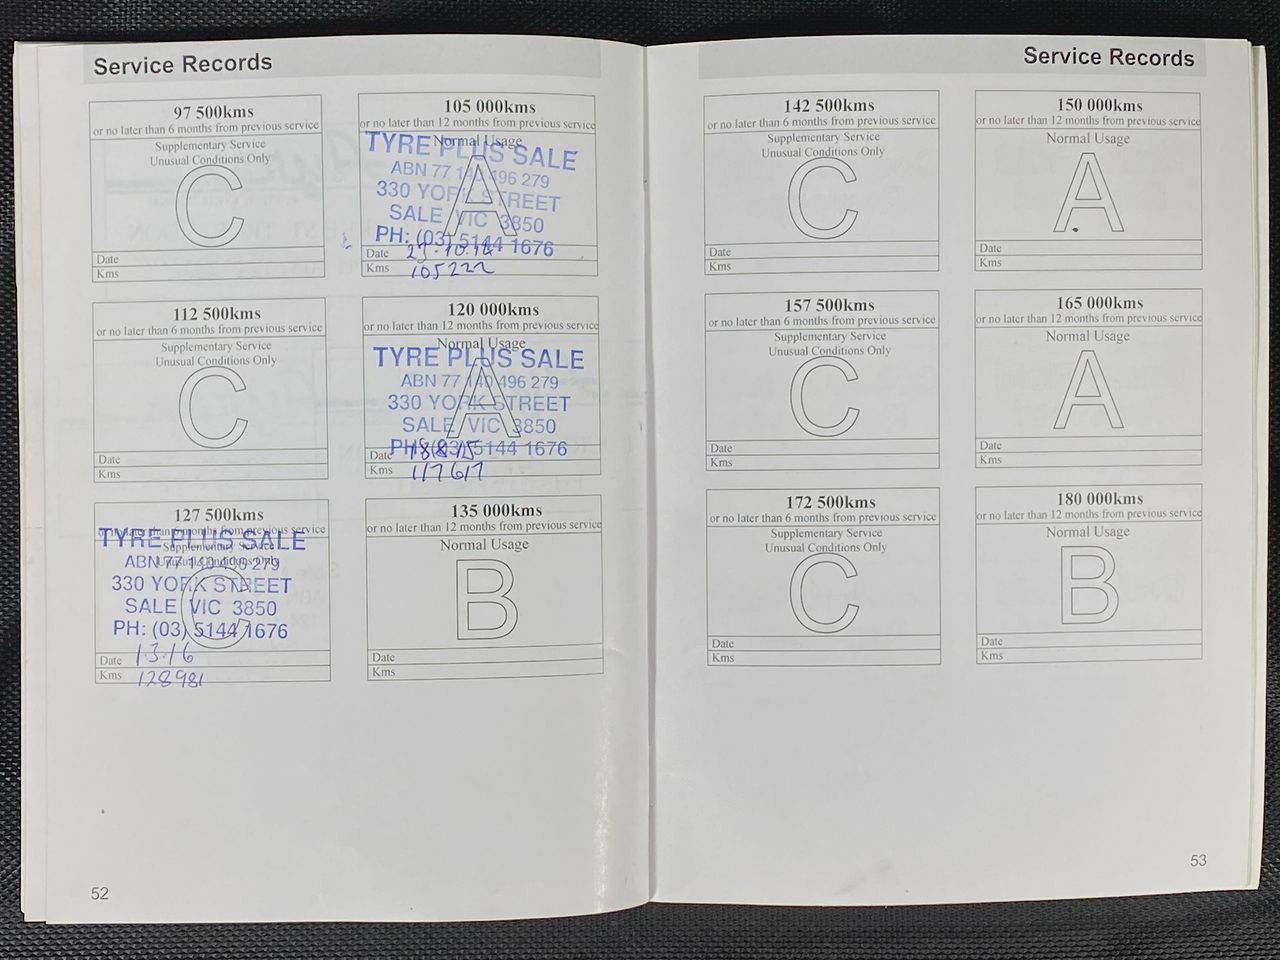 Service Records
97 500kms
or no later than 6 months from previous service
Supplementary Service
Unusual Conditions Only
C
Date
Kms
105 000kms
or no later than 12 months from previous service
Normal Usage
A
TYRE PLUS SALE
ABN 77 140 496 279
330 YORK STREET
SALE VIC 3850
PH: (03) 5144 1676
Date
Kms 105222
112 500kms
or no later than 6 months from previous service
Supplementary Service
Unusual Conditions Only
C
Date
Kms
120 000kms
or no later than 12 months from previous service
Normal Usage
A
TYRE PLUS SALE
ABN 77 140 496 279
330 YORK STREET
SALE VIC 3850
PH: (03) 5144 1676
Date 18.8.15
Kms 117617
127 500kms
or no later than 6 months from previous service
Supplementary Service
Unusual Conditions Only
C
TYRE PLUS SALE
ABN 77 140 496 279
330 YORK STREET
SALE VIC 3850
PH: (03) 5144 1676
Date 1.3.16
Kms 128981
135 000kms
or no later than 12 months from previous service
Normal Usage
B
Date
Kms
52
Service Records
142 500kms
or no later than 6 months from previous service
Supplementary Service
Unusual Conditions Only
C
Date
Kms
150 000kms
or no later than 12 months from previous service
Normal Usage
A
Date
Kms
157 500kms
or no later than 6 months from previous service
Supplementary Service
Unusual Conditions Only
C
Date
Kms
165 000kms
or no later than 12 months from previous service
Normal Usage
A
Date
Kms
172 500kms
or no later than 6 months from previous service
Supplementary Service
Unusual Conditions Only
C
Date
Kms
180 000kms
or no later than 12 months from previous service
Normal Usage
B
Date
Kms
53